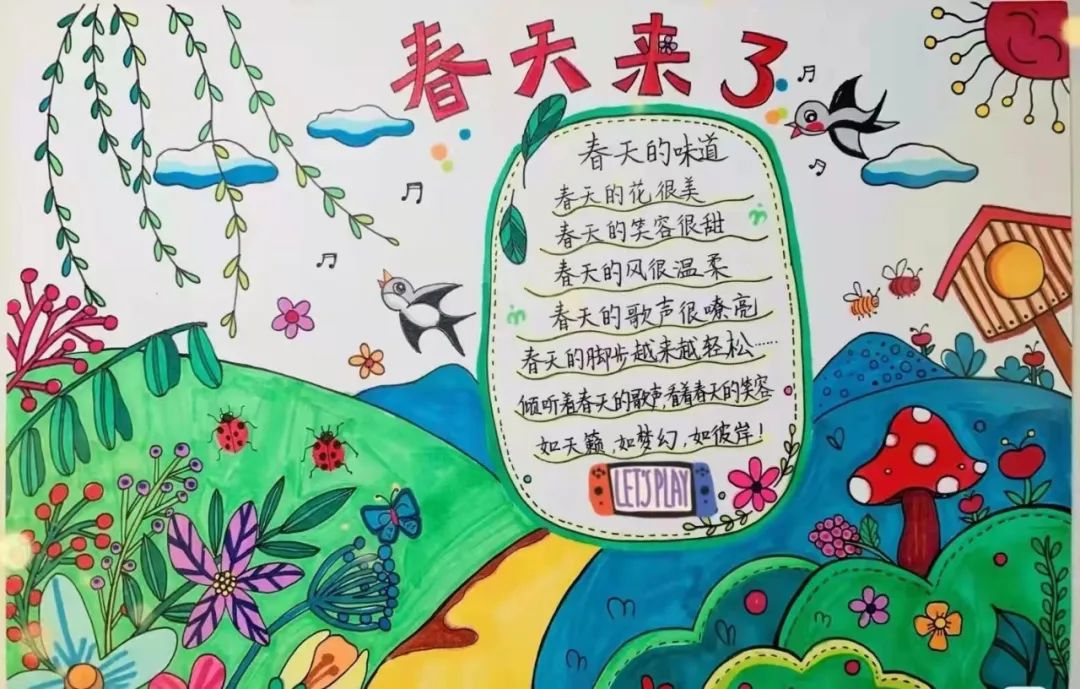 春天来了
春天的味道
春天的花很美
春天的笑容很甜
春天的风很温柔
春天的歌声很嘹亮
春天的脚步越来越轻松……
倾听着春天的歌声,看着春天的笑容
如天籁,如梦幻,如彼岸!
LET'S PLAY